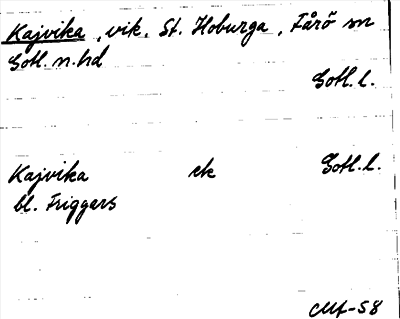 Kajvika, vik, St. Hoburga, Fårö sn
Gotl. n. hd
Gotl. l.
Kajvika ek Gotl. l.
bl. Friggars